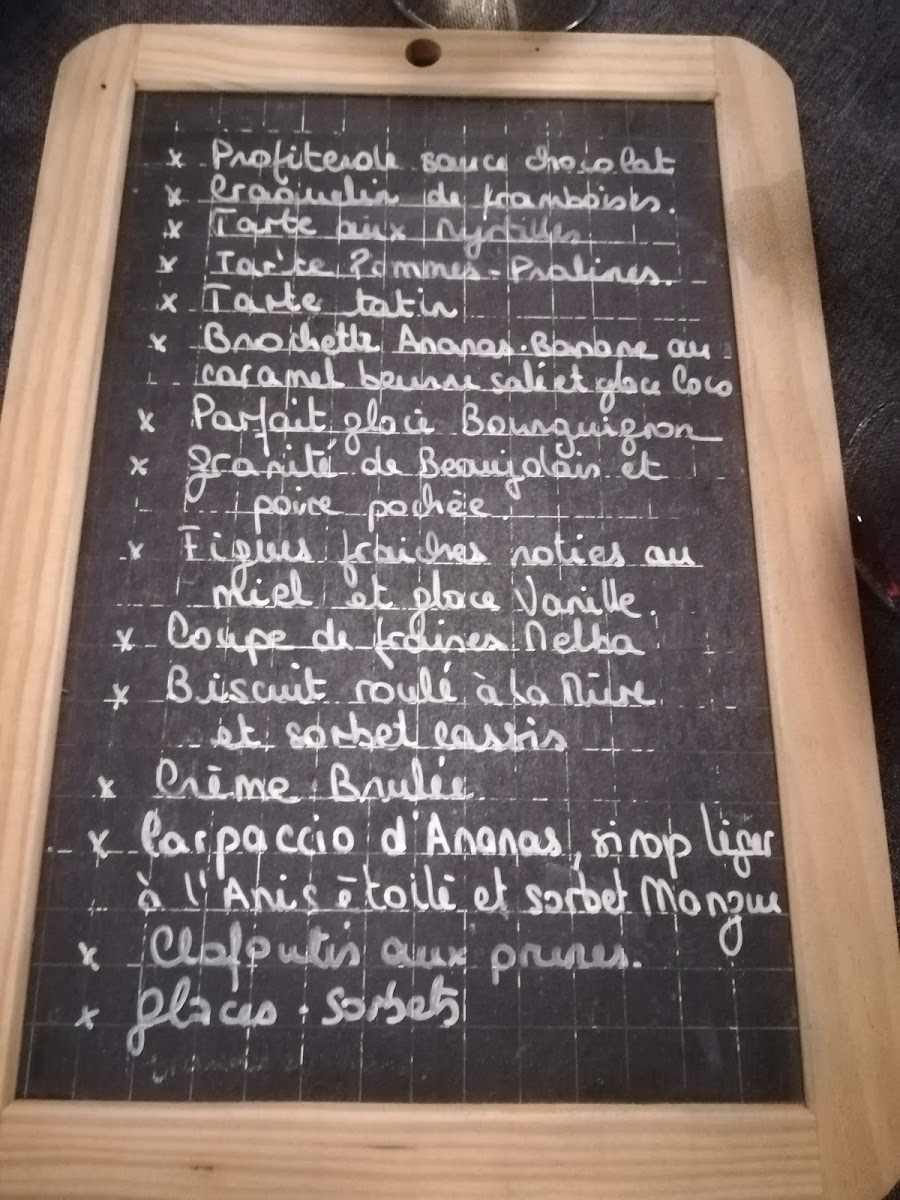 x Profiterole sauce chocolat
x Craquelin de framboises.
x Tarte aux Myrtilles
x Tarte Pommes-Pralines.
x Tarte tatin
x Brochette Ananas-Banane au
caramel beurre salé et glace Coco
x Parfait glacé Bourguignon
x Granité de Beaujolais et
poire pochée.
x Figues fraiches roties au
miel et glace Vanille.
x Coupe de fraises Melba
x Biscuit roulé à la Mûre
et sorbet cassis
x Crème Brulée
x Carpaccio d'Ananas, sirop léger
à l'Anis étoilé et sorbet Mangue
x Clafoutis aux prunes.
x glaces. sorbets